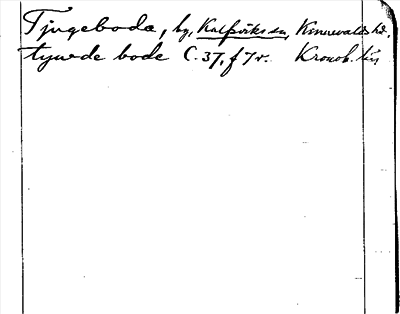 Tjugeboda, by, Kalfsviks sn, Kinnevalds hd.
tyuede bode C. 37, f 7 v. Kronob. län